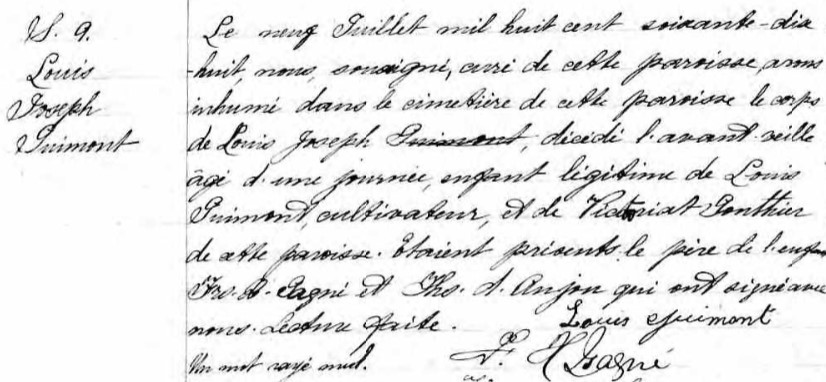 S. 9.
Louis
Joseph
Guimont
Le neuf Juillet mil huit cent soixante-dix
-huit, nous, sousigné, curé de cette paroisse, avons
inhumé dans le cimetière de cette paroisse le corps
de Louis Joseph Guimont, décédé l'avant-veille
âgé d'une journée, enfant légitime de Louis
Guimont, cultivateur, et de Victoria Gonthier
de cette paroisse. Etaient présents le père de l'enfant
Frs. A. Gagné et Ths. d'Anjou qui ont signé avec
nous. Lecture faite. Louis Guimont
Un mot rayé nul. F. X Gagné